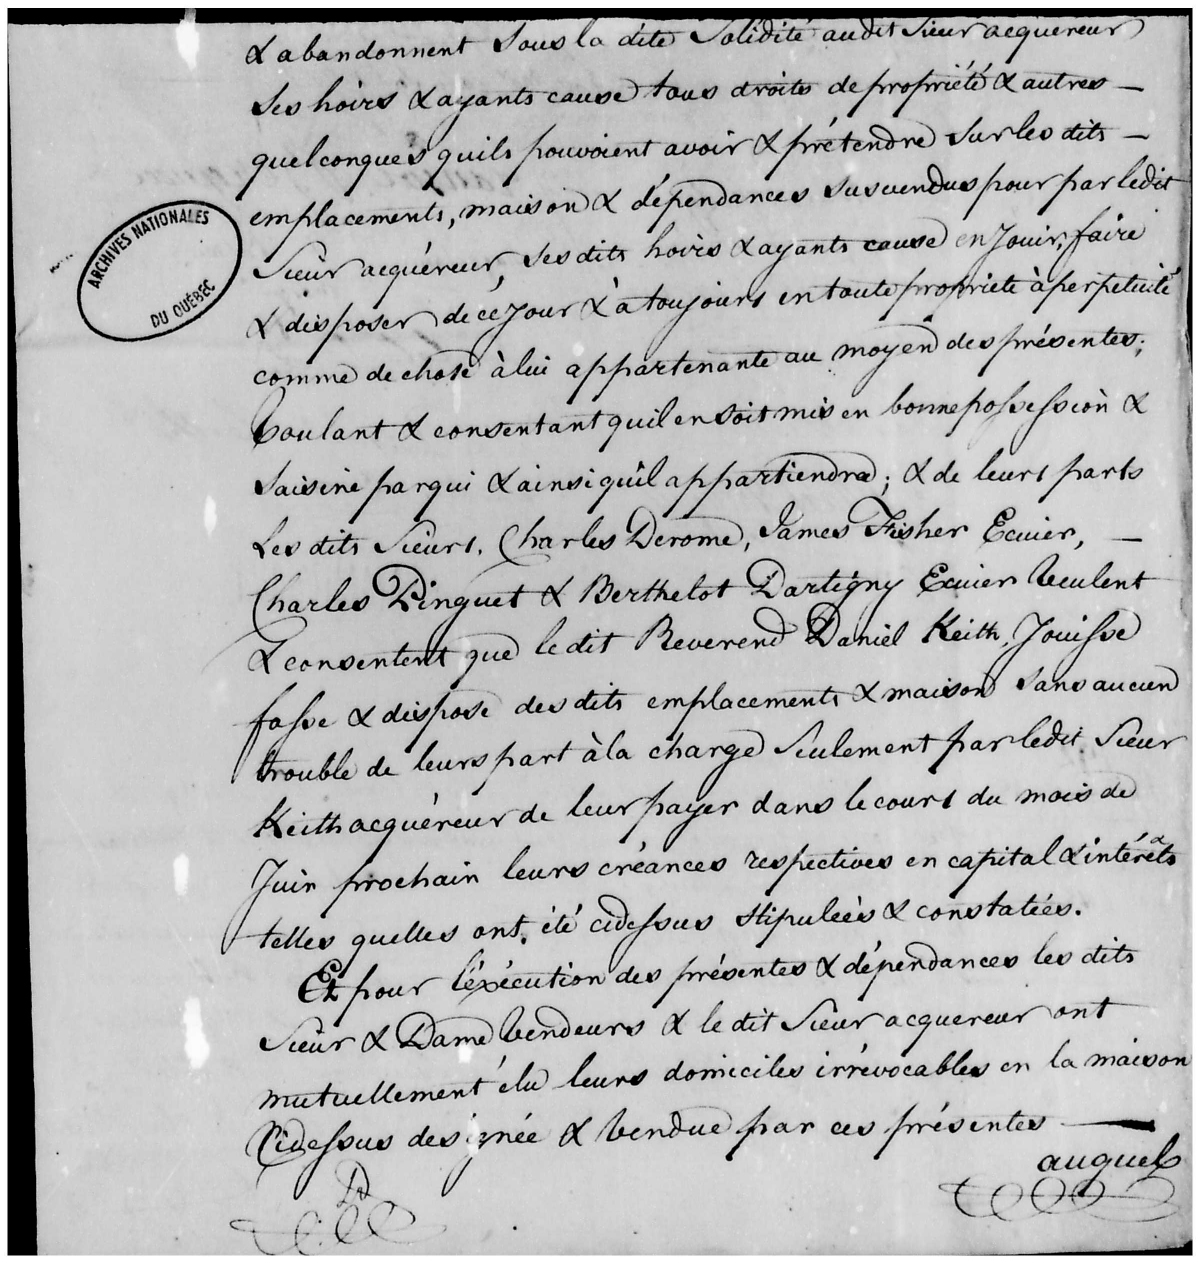 & abandonnent sous la dite Solidité audit Sieur acquereur
Ses hoirs & ayants cause tous droits de propriété & autres —
quelconques quils pouvoient avoir & prétendre sur les dits —
emplacements, maison & dépendances susvendus pour par ledit
Sieur acquéreur, ses dits hoirs & ayants cause en Jouir, faire
& disposer de ce Jour & à toujours en toute propriété à perpétuité
comme de chose à lui appartenante au moyen des présentes;
Voulant & consentant quil en soit mis en bonne possession &
saisine par qui & ainsi quil appartiendra; & de leurs parts
Les dits Sieurs. Charles Derome, James Fisher Ecuier, —
Charles Pinguet & Berthelot Dartigny Ecuier veulent
& consentent que le dit Reverend Daniel Keith, Jouisse
fasse & dispose des dits emplacements & maison sans aucun
trouble de leurs part à la charge Seulement par ledit Sieur
Keith acquéreur de leur payer dans le cours du mois de
Juin prochain leurs créances respectives en capital & intérêts
telles quelles ont été cidessus stipulées & constatées.
Et pour l'éxécution des présentes & dépendances les dits
Sieur & Dame Vendeurs & le dit Sieur acquereur ont
mutuellement élu leurs domiciles irrévocables en la maison
Cidessus designée & vendue par ces présentes —
auquel
ARCHIVES NATIONALES
DU QUÉBEC